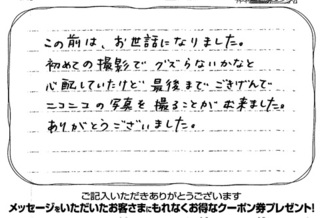 この前は、お世話になりました。
初めての撮影で グズらないかなと
心配していたけど 最後まで ごきげんで
ニコニコの写真を 撮ることが出来ました。
ありがとうございました。
ご記入いただきありがとうございます
メッセージをいただいたお客さまにもれなくお得なクーポン券プレゼント!